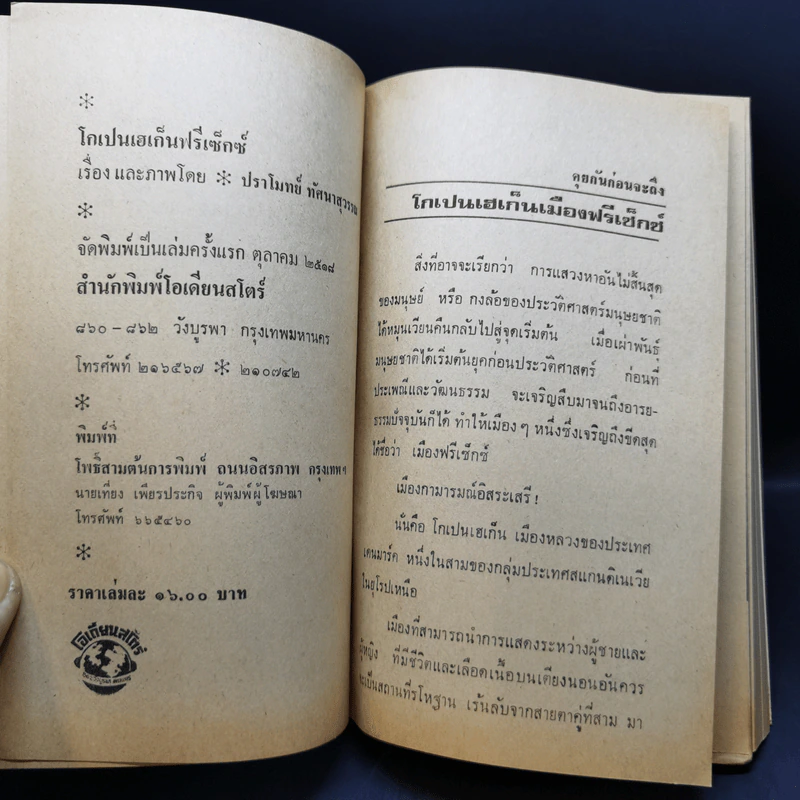 โกเปนเฮเก็นฟรีเซ็กซ์
เรื่อง และภาพโดย ✻ ปราโมทย์ ทัศนาสุวรรณ
จัดพิมพ์เป็นเล่มครั้งแรก ตุลาคม ๒๕๑๘
สำนักพิมพ์โอเดียนสโตร์
๘๖๐ – ๘๖๒ วังบูรพา กรุงเทพมหานคร
โทรศัพท์ ๒๑๖๕๖๗ ✻ ๒๑๐๗๔๒
พิมพ์ที่
โพธิ์สามต้นการพิมพ์ ถนนอิสรภาพ กรุงเทพ ฯ
นายเที่ยง เพียรประกิจ ผู้พิมพ์ผู้โฆษณา
โทรศัพท์ ๖๖๕๔๖๐
ราคาเล่มละ ๑๖.๐๐ บาท
โอเดียนสโตร์
คุยกันก่อนจะถึง
โกเปนเฮเก็นเมืองฟรีเซ็กซ์
สิ่งที่อาจจะเรียกว่า การแสวงหาอันไม่สิ้นสุด
ของมนุษย์ หรือ กงล้อของประวัติศาสตร์มนุษยชาติ
ได้หมุนเวียนคืนกลับไปสู่จุดเริ่มต้น เมื่อเผ่าพันธุ์
มนุษยชาติได้เริ่มต้นยุคก่อนประวัติศาสตร์ ก่อนที่
ประเพณีและวัฒนธรรม จะเจริญสืบมาจนถึงอารย-
ธรรมปัจจุบันก็ได้ ทำให้เมือง ๆ หนึ่งซึ่งเจริญถึงขีดสุด
ได้ชื่อว่า เมืองฟรีเซ็กซ์
เมืองกามารมณ์อิสระเสรี !
นั่นคือ โกเปนเฮเก็น เมืองหลวงของประเทศ
เดนมาร์ค หนึ่งในสามของกลุ่มประเทศสแกนดิเนเวีย
ในยุโรปเหนือ
เมืองที่สามารถนำการแสดงระหว่างผู้ชายและ
ผู้หญิง ที่มีชีวิตและเลือดเนื้อบนเตียงนอนอันควร
จะเป็นสถานที่รโหฐาน เร้นลับจากสายตาคู่ที่สาม มา